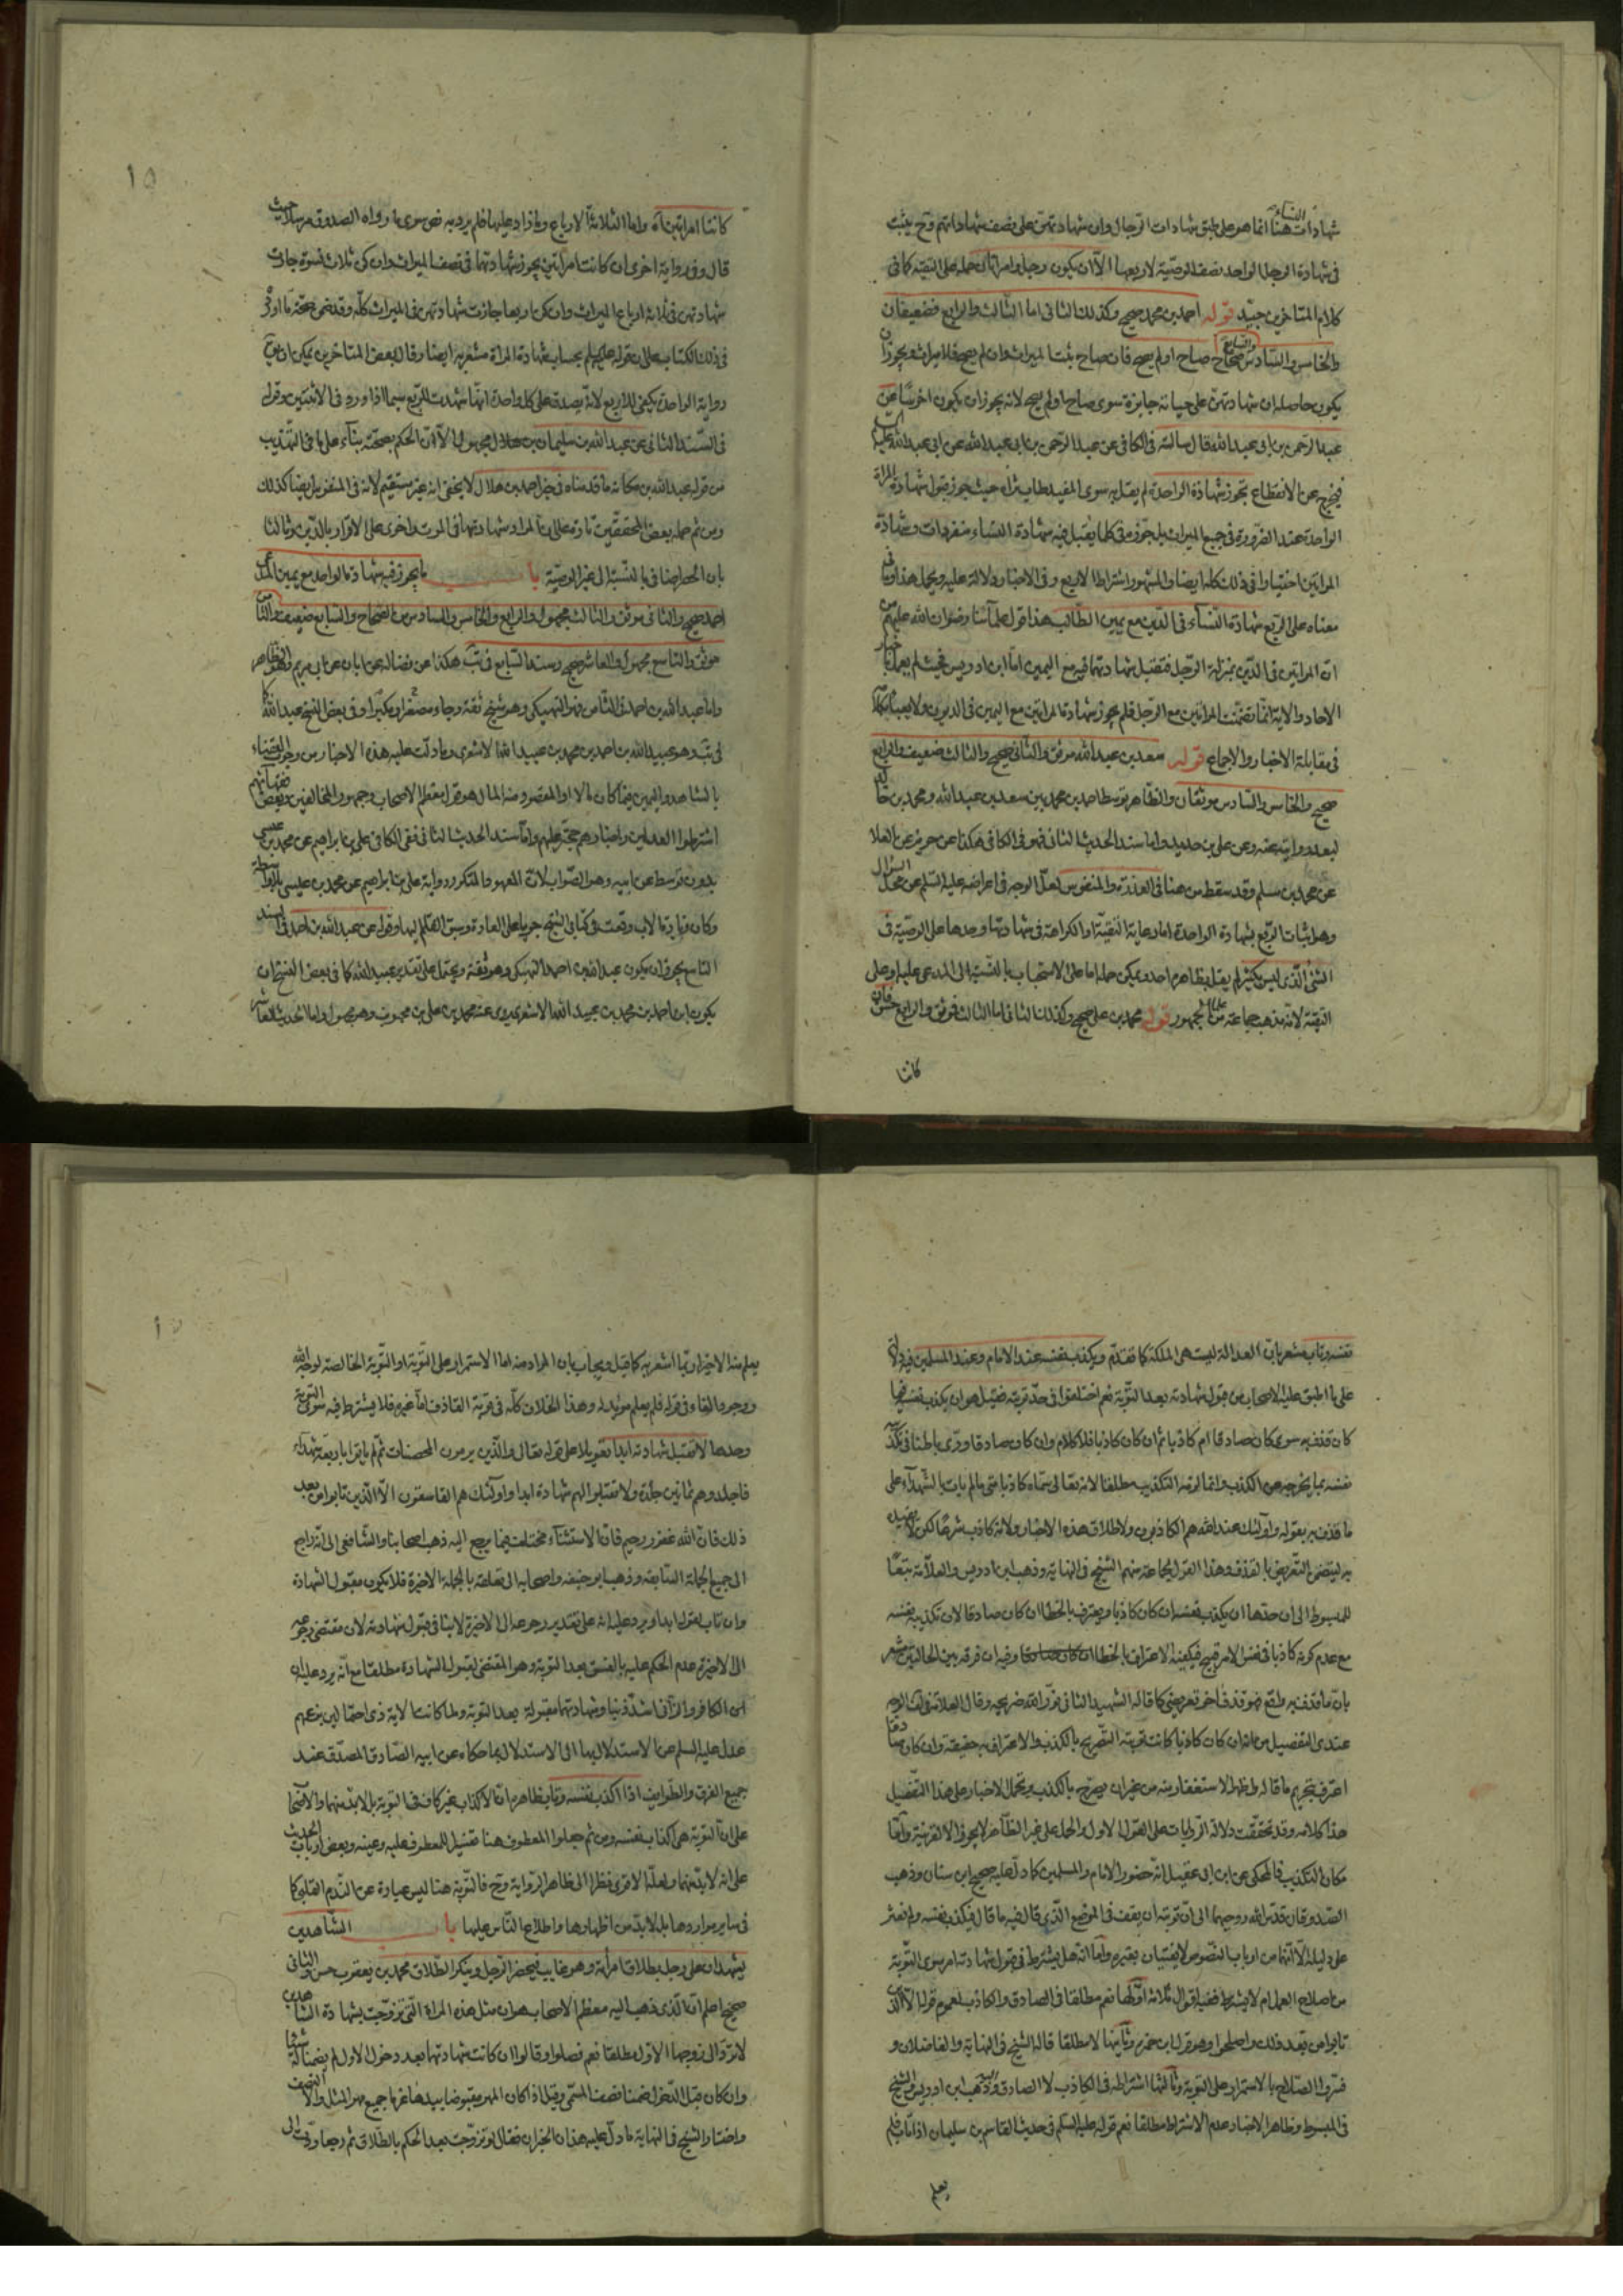 شهادات النساء هنا انما هو على طبق شهادات الرجال وان شهادتهن على نصف شهاداتهم وح يثبت
فى شهادة الرجل الواحد نصف الوصية لا ربعها الا ان يكون رجلا وامراتان حمله على التقية كما فى
كلام المتاخرين جيد قوله احمد بن محمد صحيح وكذلك الثانى اما الثالث والرابع فضعيفان
والخامس والسادس والسابع صحاح صاح اولم يصح فان صاح يثبت الميراث وان لم يصح فلا ميراث ويجوز ان
يكون حاصله ان شهادتهن على حياته جايزة سوى صاح اولم يصح لانه يجوز ان يكون اخرس عن
عبد الرحمن بن ابى عبد الله قال سالته فى الكافى عن عبد الرحمن بن ابى عبد الله عن ابى عبد الله عليه السلم
فيخرج عن الانقطاع تجوز شهادة الواحدة لم يقل به سوى المفيد طاب ثراه حيث جوز قبول شهادة المراة
الواحدة عند الضرورة فى جميع الميراث بل جوز فى كل ما يقبل فيه شهادة النساء منفردات وشهادة
المراتين اختيارا فى ذلك كله ايضا والمشهور اشتراط الاربع وفى الاخبار دلالة عليه ويحمل هذا وما فى
معناه على الربع شهادة النساء فى الدين مع يمين الطالب هذا قول علمآئنا رضوان الله عليهم من
ان المراتين فى الدين بمنزلة الرجل فتقبل شهادتهما فيه مع اليمين اما ابن ادريس فحيث لم يعمل باخبار
الاحاد والاية انما تضمنت المراتين مع الرجل فلم يجوز شهادة المراتين مع اليمين فى الديون ولا يعبأ بكلامه
فى مقابلة الاخبار والاجماع قوله سعد بن عبد الله موثق والثانى صحيح والثالث ضعيف والرابع
صحيح والخامس والسادس موثقان والظاهر توسط احمد بن محمد بين سعد بن عبد الله ومحمد بن خالد
لبعد روايته عنه وعن على بن حديد واما سند الحديث الثانى فهو فى الكافى هكذا عن حريز عن العلا
عن محمد بن مسلم وقد سقط من هنا فى العذرة والمنفوس لعل الوجه فى اعراضه عليه السلم عن محل السؤال
وهل يثبت الربع بشهادة الواحدة اما رعاية التقية او الكراهة فى شهادتها وحدها على الوصية فى
الشئ الذى ليس بكثير لم يقل بظاهره احد ويمكن حمله اما على الاستحباب بالنسبة الى المدعى عليه او على
التقية لانه مذهب جماعة من علماء الجمهور قوله محمد بن على صحيح وكذلك الثانى اما الثالث فموثق والرابع حسن فان
كانتا
كانتا امراتين اه واما الثلاثة الارباع وما زاد عليها فلم يرد به نص سوى ما رواه الصدوق مرسلا حيث
قال وفى رواية اخرى ان كانت امراتين يجوز شهادتهما فى نصف الميراث وان كن ثلاث نسوة جازت
شهادتهن فى ثلاثة ارباع الميراث وان كن اربعا جازت شهادتهن فى الميراث كله وقد ضمن صحة ما اورده
فى ذلك الكتاب على ان قوله عليه السلم بحساب شهادة المراة مشعر به ايضا وقال بعض المتاخرين يمكن ان يق
رواية الواحدة يكفى للاربع لانه يصدق على كل واحدة انها شهدت للربع سيما اذا ورد فى الاثنتين وقوله
فى السند الثانى عن عبد الله بن سليمان بن هلال مجهول الا ان الحكم بصحته بناء على ما فى التهذيب
من قوله عبد الله بن مكانه ما قدمناه فى خبر احمد بن هلال لا يخفى انه غير مستقيم لانه فى المنفوس ايضا كذلك
ومن ثم حمله بعض المحققين تارة على ان المراد شهادتها فى الموت واخرى على الاقرار بالدين وثالثا
بان الحصر اضافى بالنسبة الى غير الوصية باب ما يجوز فيه شهادة الواحد مع يمين المدعى
احمد صحيح والثانى موثق والثالث مجهول والرابع والخامس والسادس من الصحاح والسابع ضعيف والثامن
موثق والتاسع مجهول والعاشر صحيح وسند السابع فى يب هكذا عن فضالة عن ابان عن ابى مريم وهو الظاهر
واما عبد الله بن احمد فى الثامن فهو النهيكى وهو شيخ ثقة وجاء مصغرا ومكبرا وفى بعض النسخ عبيد الله كما
فى يب وهو عبيد الله بن احمد بن محمد بن عبيد الله الاشعرى وما دلت عليه هذه الاخبار من وجوب القضاء
بالشاهد واليمين فيما كان مالا او المقصود منه المال هو قول معظم الاصحاب وجمهور المخالفين وبعض فقهائهم
اشترطوا العدلين واخبارهم حجة عليهم واما سند الحديث الثانى ففى الكافى على بن ابراهيم عن محمد بن عيسى
بدون توسط عن ابيه وهو الصواب لان المعهود المتكرر رواية على بن ابراهيم عن محمد بن عيسى بلا واسطة
وكان زيادة الاب وقعت فى كتابى الشيخ جريا على العادة وسبق القلم اليها وقوله عن عبد الله بن احمد فى السند
التاسع يجوز ان يكون عبد الله بن احمد النهيكى وهو ثقة ويحتمل على تقدير عبيد الله كما فى بعض النسخ ان
يكون ابن احمد بن محمد بن عبيد الله الاشعرى يروى عنه محمد بن على بن محبوب وهو مجهول واما الحديث العاشر
نفسه وتاب مشعر بان العدالة ليست هى الملكة كما تقدم ويكذب نفسه عند الامام وعند المسلمين فيه دلالة
على ما اطبق عليه الاصحاب من قبول شهادته بعد التوبة نعم اختلفوا فى حد توبته فقيل هو ان يكذب نفسه فيما
كان قذف به سوى كان صادقا ام كاذبا ثم ان كان كاذبا فلا كلام وان كان صادقا ورى باطنا فى تكذيب
نفسه بما يخرجه عن الكذب وانما لزمه التكذيب مطلقا لانه تعالى سماه كاذبا متى ما لم يات بالشهداء على
ما قذف به بقوله واولئك عند الله هم الكاذبون ولاطلاق هذه الاخبار ولانه كاذب شرعا لكن لا
به ليتضمن التعريض بالقذف وهذا القول لجماعة منهم الشيخ فى النهاية وذهب ابن ادريس والعلامة تبعا
للمبسوط الى ان حدها ان يكذب نفسه ان كان كاذبا ويعترف بالخطا ان كان صادقا لان تكذيبه نفسه
مع عدم كونه كاذبا فى نفس الامر قبيح فيكفيه الاعتراف بالخطا وفيه ان فرقه بين الحالين مشعر
بان ما قذف به واقع فهو قذف اخر تعريضى كما قاله الشهيد الثانى نور الله ضريحه وقال العلامة فى لف الوجه
عندى التفصيل من انه ان كان كاذبا كانت توبته التصريح بالكذب والاعتراف به حقيقة وان كان صادقا
اعترف بتحريم ما قاله واظهر الاستغفار منه من غير ان يصرح بالكذب ويحمل الاخبار على هذا التفصيل
هذا كلامه وقد تحققت دلالة الروايات على القول الاول والحمل على غير الظاهر لا يجوز الا لقرينة واما
مكان التكذيب فالمحكى عن ابن ابى عقيل انه حضور الامام والمسلمين كما دل عليه صحيح ابن سنان وذهب
الصدوقان قدس الله روحيهما الى ان توبته ان يقف فى الموضع الذى قال فيه ما قال فيكذب نفسه ولم نعثر
على دليله الا انهما من ارباب النصوص لا يفتيان بغيره واما انه هل يشترط فى قبول شهادته امر سوى التوبة
من اصلاح العمل ام لا يشترط ففيه اقوال ثلاثة اولها نعم مطلقا فى الصادق والكاذب لعموم قوله الا الذين
تابوا من بعد ذلك واصلحوا وهو قول ابن حمزه وثانيها لا مطلقا قاله الشيخ فى النهاية والفاضلان و
فسروا الصلاح بالاستمرار على التوبة وثالثها اشتراطه فى الكاذب لا الصادق وهو مذهب ابن ادريس والشيخ
فى المبسوط وظاهر الاخبار عدم الاشتراط مطلقا نعم قوله عليه السلم فى حديث القاسم بن سليمان اذا تاب فلم
يعلم
يعلم منه الا خير ربما اشعر به كما قيل ويجاب بان المراد منه اما الاستمرار على التوبة او التوبة الخالصة لوجه الله
ووجود الفاء فى قوله فلم يعلم مؤيد له وهذا الخلاف كله فى توبة القاذف اما غيره فلا يشترط فيه سوى التوبة
وحدها لا تقبل شهادته ابدا تعويلا على قوله تعالى والذين يرمون المحصنات ثم لم ياتوا باربعة شهداء
فاجلدوهم ثمانين جلدة ولا تقبلوا لهم شهادة ابدا واولئك هم الفاسقون الا الذين تابوا من بعد
ذلك فان الله غفور رحيم فان الاستثناء مختلف فيما يرجع اليه ذهب اصحابنا والشافعى الى انه راجع
الى جميع الجملة السابقة وذهب ابو حنيفه واصحابه الى تعلقه بالجملة الاخيرة فلا يكون مقبول الشهادة
وان تاب لقوله ابدا ويرد عليه انه على تقدير رجوعه الى الاخيرة لا ينافى قبول شهادته لان مقتضى رجوعه
الى الاخيرة عدم الحكم عليه بالفسق بعد التوبة وهو المقتضى لقبول الشهادة مطلقا مع انه يرد عليه ان
امر الكافر والزانى اشد ذنبا وشهادتهما مقبولة بعد التوبة ولما كانت الاية ذى احتمالين بزعمهم
عدل عليه السلم عن الاستدلال بها الى الاستدلال بما حكاه عن ابيه الصادق المصدق عند
جميع الفرق والطوايف اذا اكذب نفسه وتاب ظاهره ان الاكذاب غير كاف فى التوبة بل لابد منهما والاصحاب
على ان التوبة هى اكذاب نفسه ومن ثم جعلوا المعطوف هنا تفسير المعطوف عليه وعينه وبعض ارباب الحديث
على انه لابد منهما ولعله الاقوى نظرا الى ظاهر الرواية وح فالتوبة هنا ليس عبارة عن الندم القلبى كما
فى ساير مواردها بل لابد من اظهارها واطلاع الناس عليها باب الشاهدين
يشهدان على رجل بطلاق امراته وهو غايب فيحضر الرجل وينكر الطلاق محمد بن يعقوب حسن والثانى
صحيح اعلم ان الذى ذهب اليه معظم الاصحاب هو ان مثل هذه المراة التى تزوجت بشهادة الشاهدين
لا ترد الى زوجها الاول مطلقا نعم فصلوا وقالوا ان كانت شهادتهما بعد دخول الاول لم يضمنا له شيئا
وان كان قبل الدخول ضمنا نصف المسمى وقيل اذا كان المهر مقبوضا بيدها غرما جميع مهر المثل والا النصف
واختار الشيخ فى النهاية ما دل عليه هذان الخبران فقال لو تزوجت بعد الحكم بالطلاق ثم رجعا ردت الى